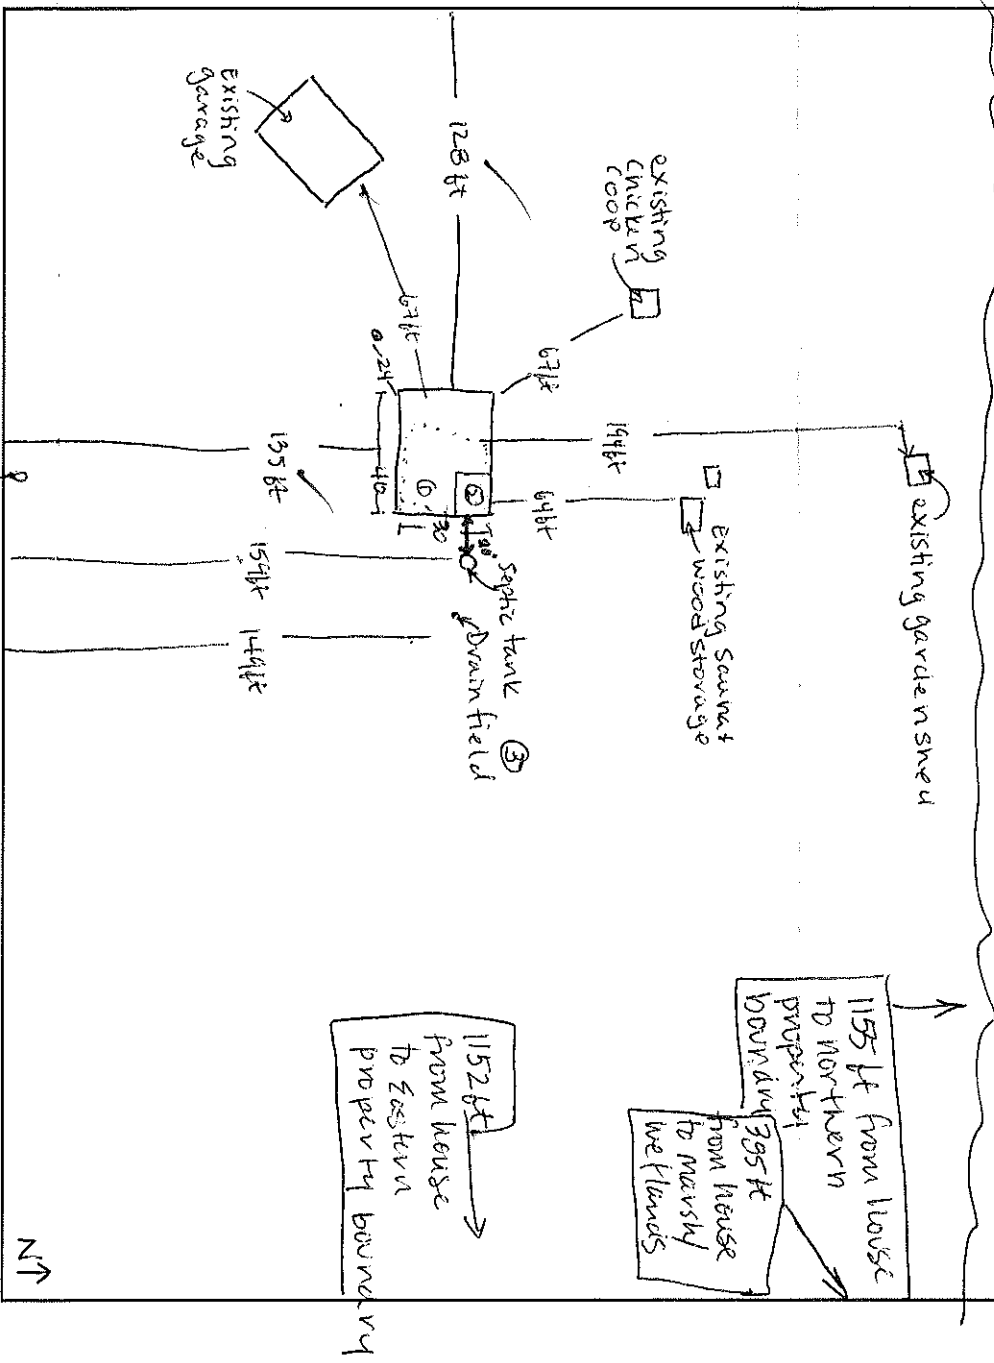 existing
garage
128 ft
existing
chicken
coop
67ft
67ft
24
40
30
135 ft
159ft
149ft
194ft
64ft
existing gardenshed
Existing Sauna+
wood storage
Septic tank
Drain field
3
1155 ft from house
to northern
property
boundry
395 ft
from house
to marsh/
wetlands
1152 ft
from house
to Eastern
property boundry
N